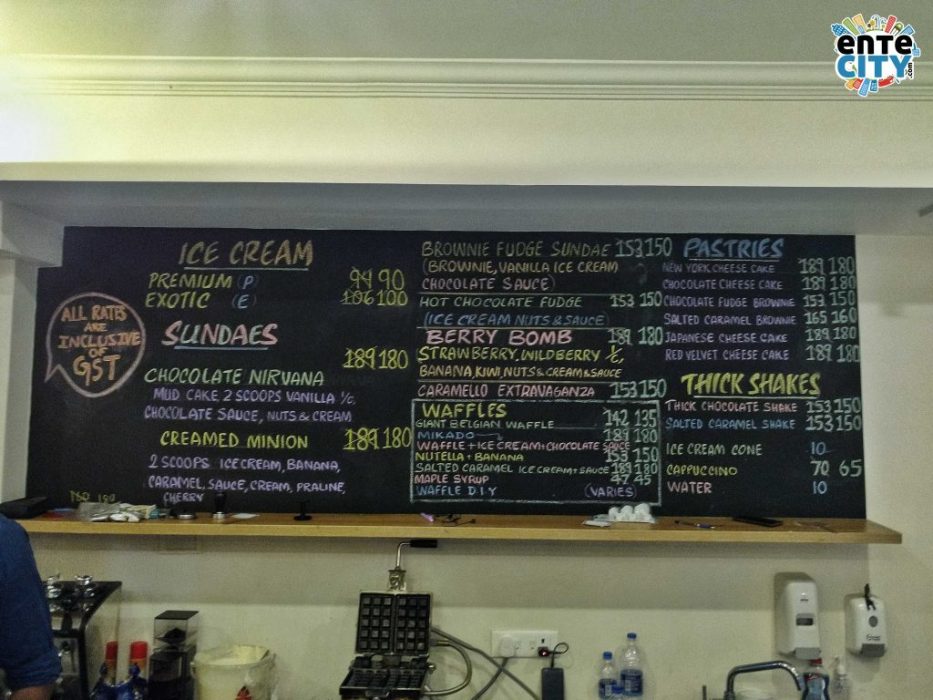 ENTE
CITY
.com
ALL RATES
ARE
INCLUSIVE
OF
GST
ICE CREAM
PREMIUM (P) 94 90
EXOTIC (E) 106 100
SUNDAES
189 180
CHOCOLATE NIRVANA
MUD CAKE 2 SCOOPS VANILLA I/C,
CHOCOLATE SAUCE, NUTS & CREAM
CREAMED MINION 189 180
2 SCOOPS ICE CREAM, BANANA,
CARAMEL, SAUCE, CREAM, PRALINE,
CHERRY
BROWNIE FUDGE SUNDAE 153 150
(BROWNIE, VANILLA ICE CREAM
CHOCOLATE SAUCE)
HOT CHOCOLATE FUDGE 153 150
(ICE CREAM NUTS & SAUCE)
BERRY BOMB 189 180
STRAWBERRY, WILDBERRY I/C,
BANANA, KIWI, NUTS & CREAM & SAUCE
CARAMELLO EXTRAVAGANZA 153 150
WAFFLES
GIANT BELGIAN WAFFLE 142 135
MIKADO 189 180
WAFFLE + ICE CREAM + CHOCOLATE SAUCE
NUTELLA + BANANA 153 150
SALTED CARAMEL ICE CREAM + SAUCE 189 180
MAPLE SYRUP 47 45
WAFFLE D.I.Y (VARIES)
PASTRIES
NEW YORK CHEESE CAKE 189 180
CHOCOLATE CHEESE CAKE 189 180
CHOCOLATE FUDGE BROWNIE 153 150
SALTED CARAMEL BROWNIE 165 160
JAPANESE CHEESE CAKE 189 180
RED VELVET CHEESE CAKE 189 180
THICK SHAKES
THICK CHOCOLATE SHAKE 153 150
SALTED CARAMEL SHAKE 153 150
ICE CREAM CONE 10
CAPPUCCINO 70 65
WATER 10